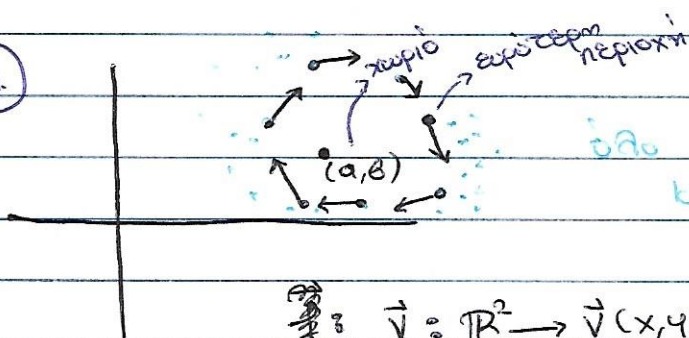 χωριό
ευρύτερη περιοχή
όλο
(α,β)
: V⃗ : ℝ² → V⃗ (x,y